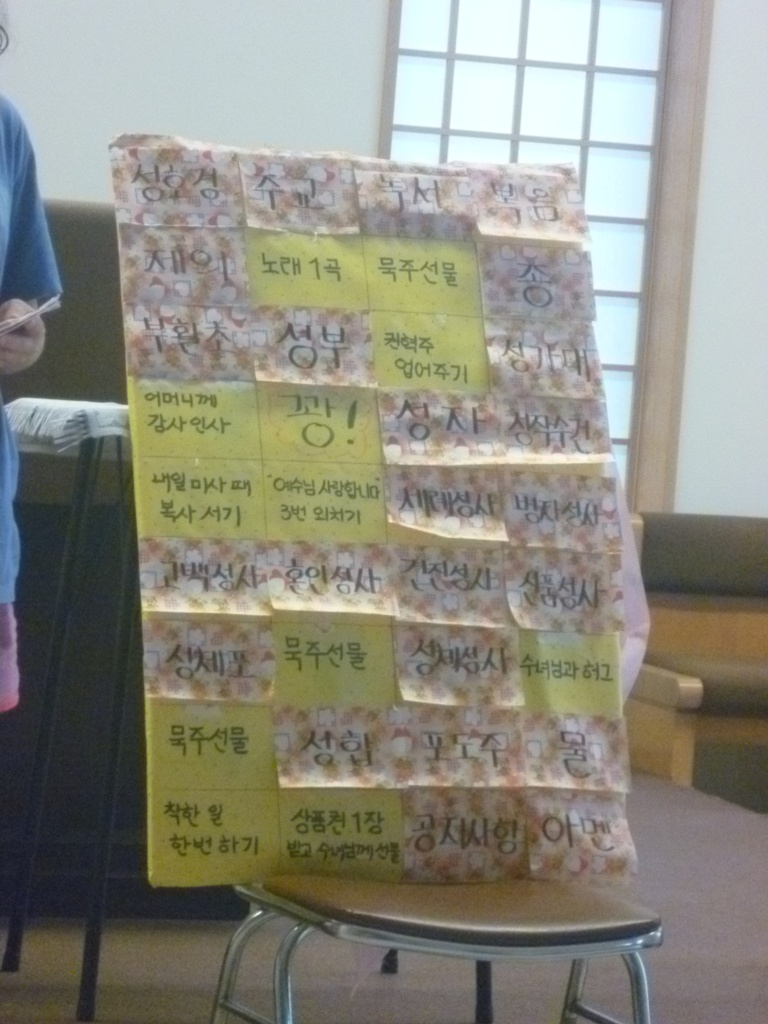 성호경 주교 독서 복음
제의 노래 1곡 묵주선물 종
부활초 성부 권혁주 성가대
업어주기
어머니께 꽝! 성자 성작수건
감사 인사
내일 미사 때 "예수님 사랑합니다" 세례성사 병자성사
복사 서기 3번 외치기
고백성사 혼인성사 견진성사 신품성사
성체포 묵주선물 성체성사 수녀님과 허그
묵주선물 성합 포도주 물
착한 일 상품권 1장 공지사항 아멘
한번 하기 받고 수녀님께 선물